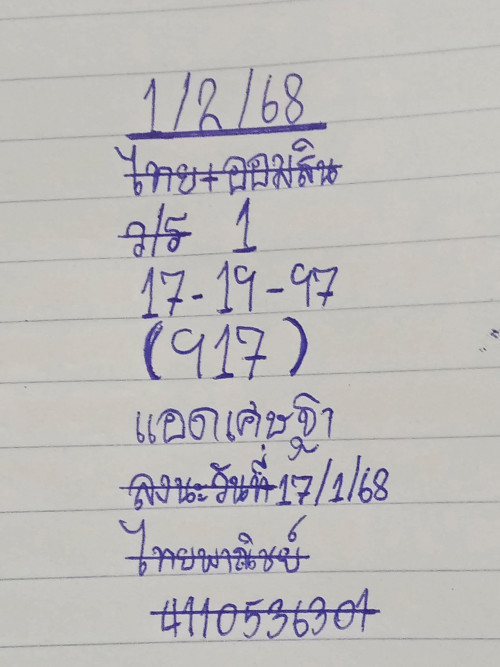 1/2/68
ไทย+ออมสิน
ว/ร 1
17-19-97
(917)
แอดเศษฐีา
ลงนะวันที่ 17/1/68
ไทยพาณิชย์
4110536301